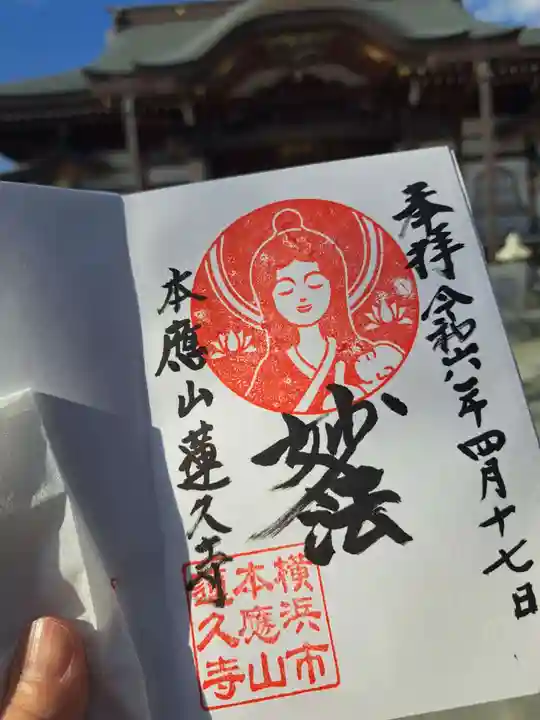 奉拝 令和六年四月十七日
妙法
本應山蓮久寺
横浜市
本應山
蓮久寺